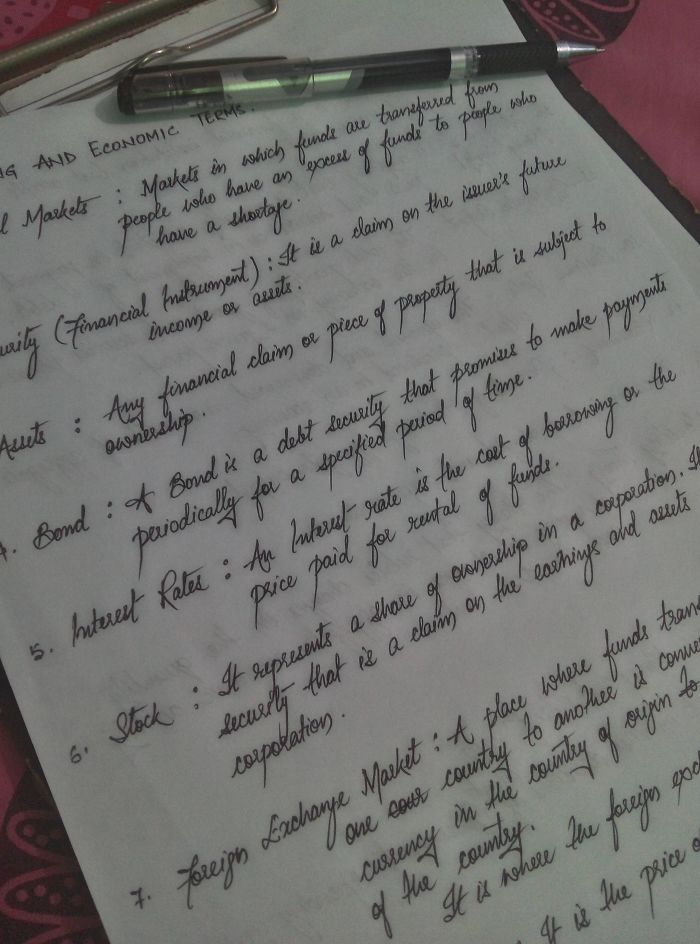 AND ECONOMIC TERMS.
Markets : Markets in which funds are transferred from
people who have an excess of funds to people who
have a shortage.
(Financial Instrument) : It is a claim on the issuer's future
income or assets.
Assets : Any financial claim or piece of property that is subject to
ownership.
4. Bond : A Bond is a debt security that promises to make payments
periodically for a specified period of time.
5. Interest Rates : An Interest rate is the cost of borrowing or the
price paid for rental of funds.
6. Stock : It represents a share of ownership in a corporation.
security that is a claim on the earnings and assets
corporation.
7. Foreign Exchange Market : A place where funds
one country to another is
currency in the country of origin to
of the country.
It is where the foreign
It is the price